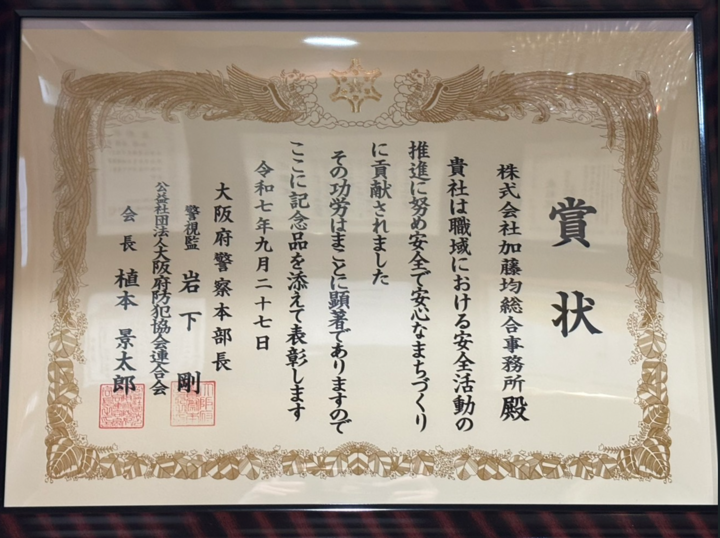 賞状
株式会社加藤均総合事務所 殿
貴社は職域における安全活動の
推進に努め安全で安心なまちづくり
に貢献されました
その功労はまことに顕著でありますので
ここに記念品を添えて表彰します
令和七年九月二十七日
大阪府警察本部長
警視監 岩下 剛
公益社団法人大阪府防犯協会連合会
会長 植本 景太郎